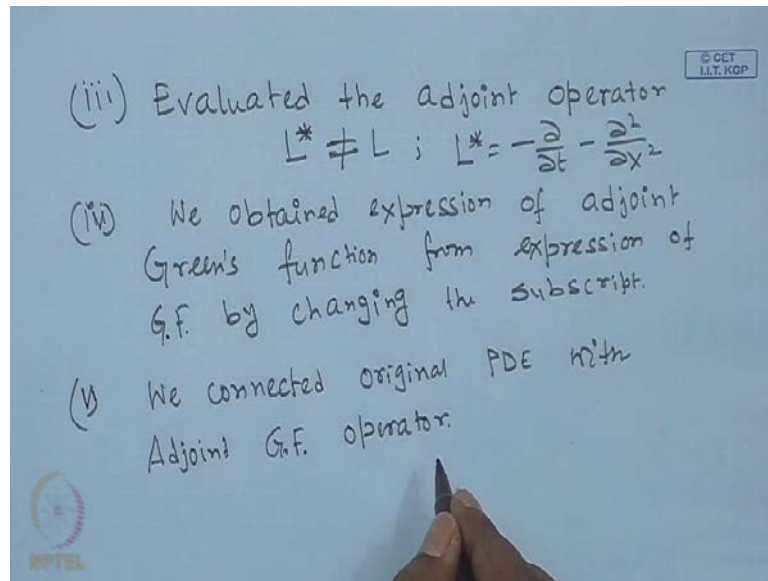 © CET
I.I.T. KGP
(iii) Evaluated the adjoint operator
L* ≠ L ; L* = -∂/∂t - ∂²/∂x²
(iv) We obtained expression of adjoint
Green's function from expression of
G.F. by changing the subscript.
(v) We connected original PDE with
Adjoint G.F. operator.
NPTEL